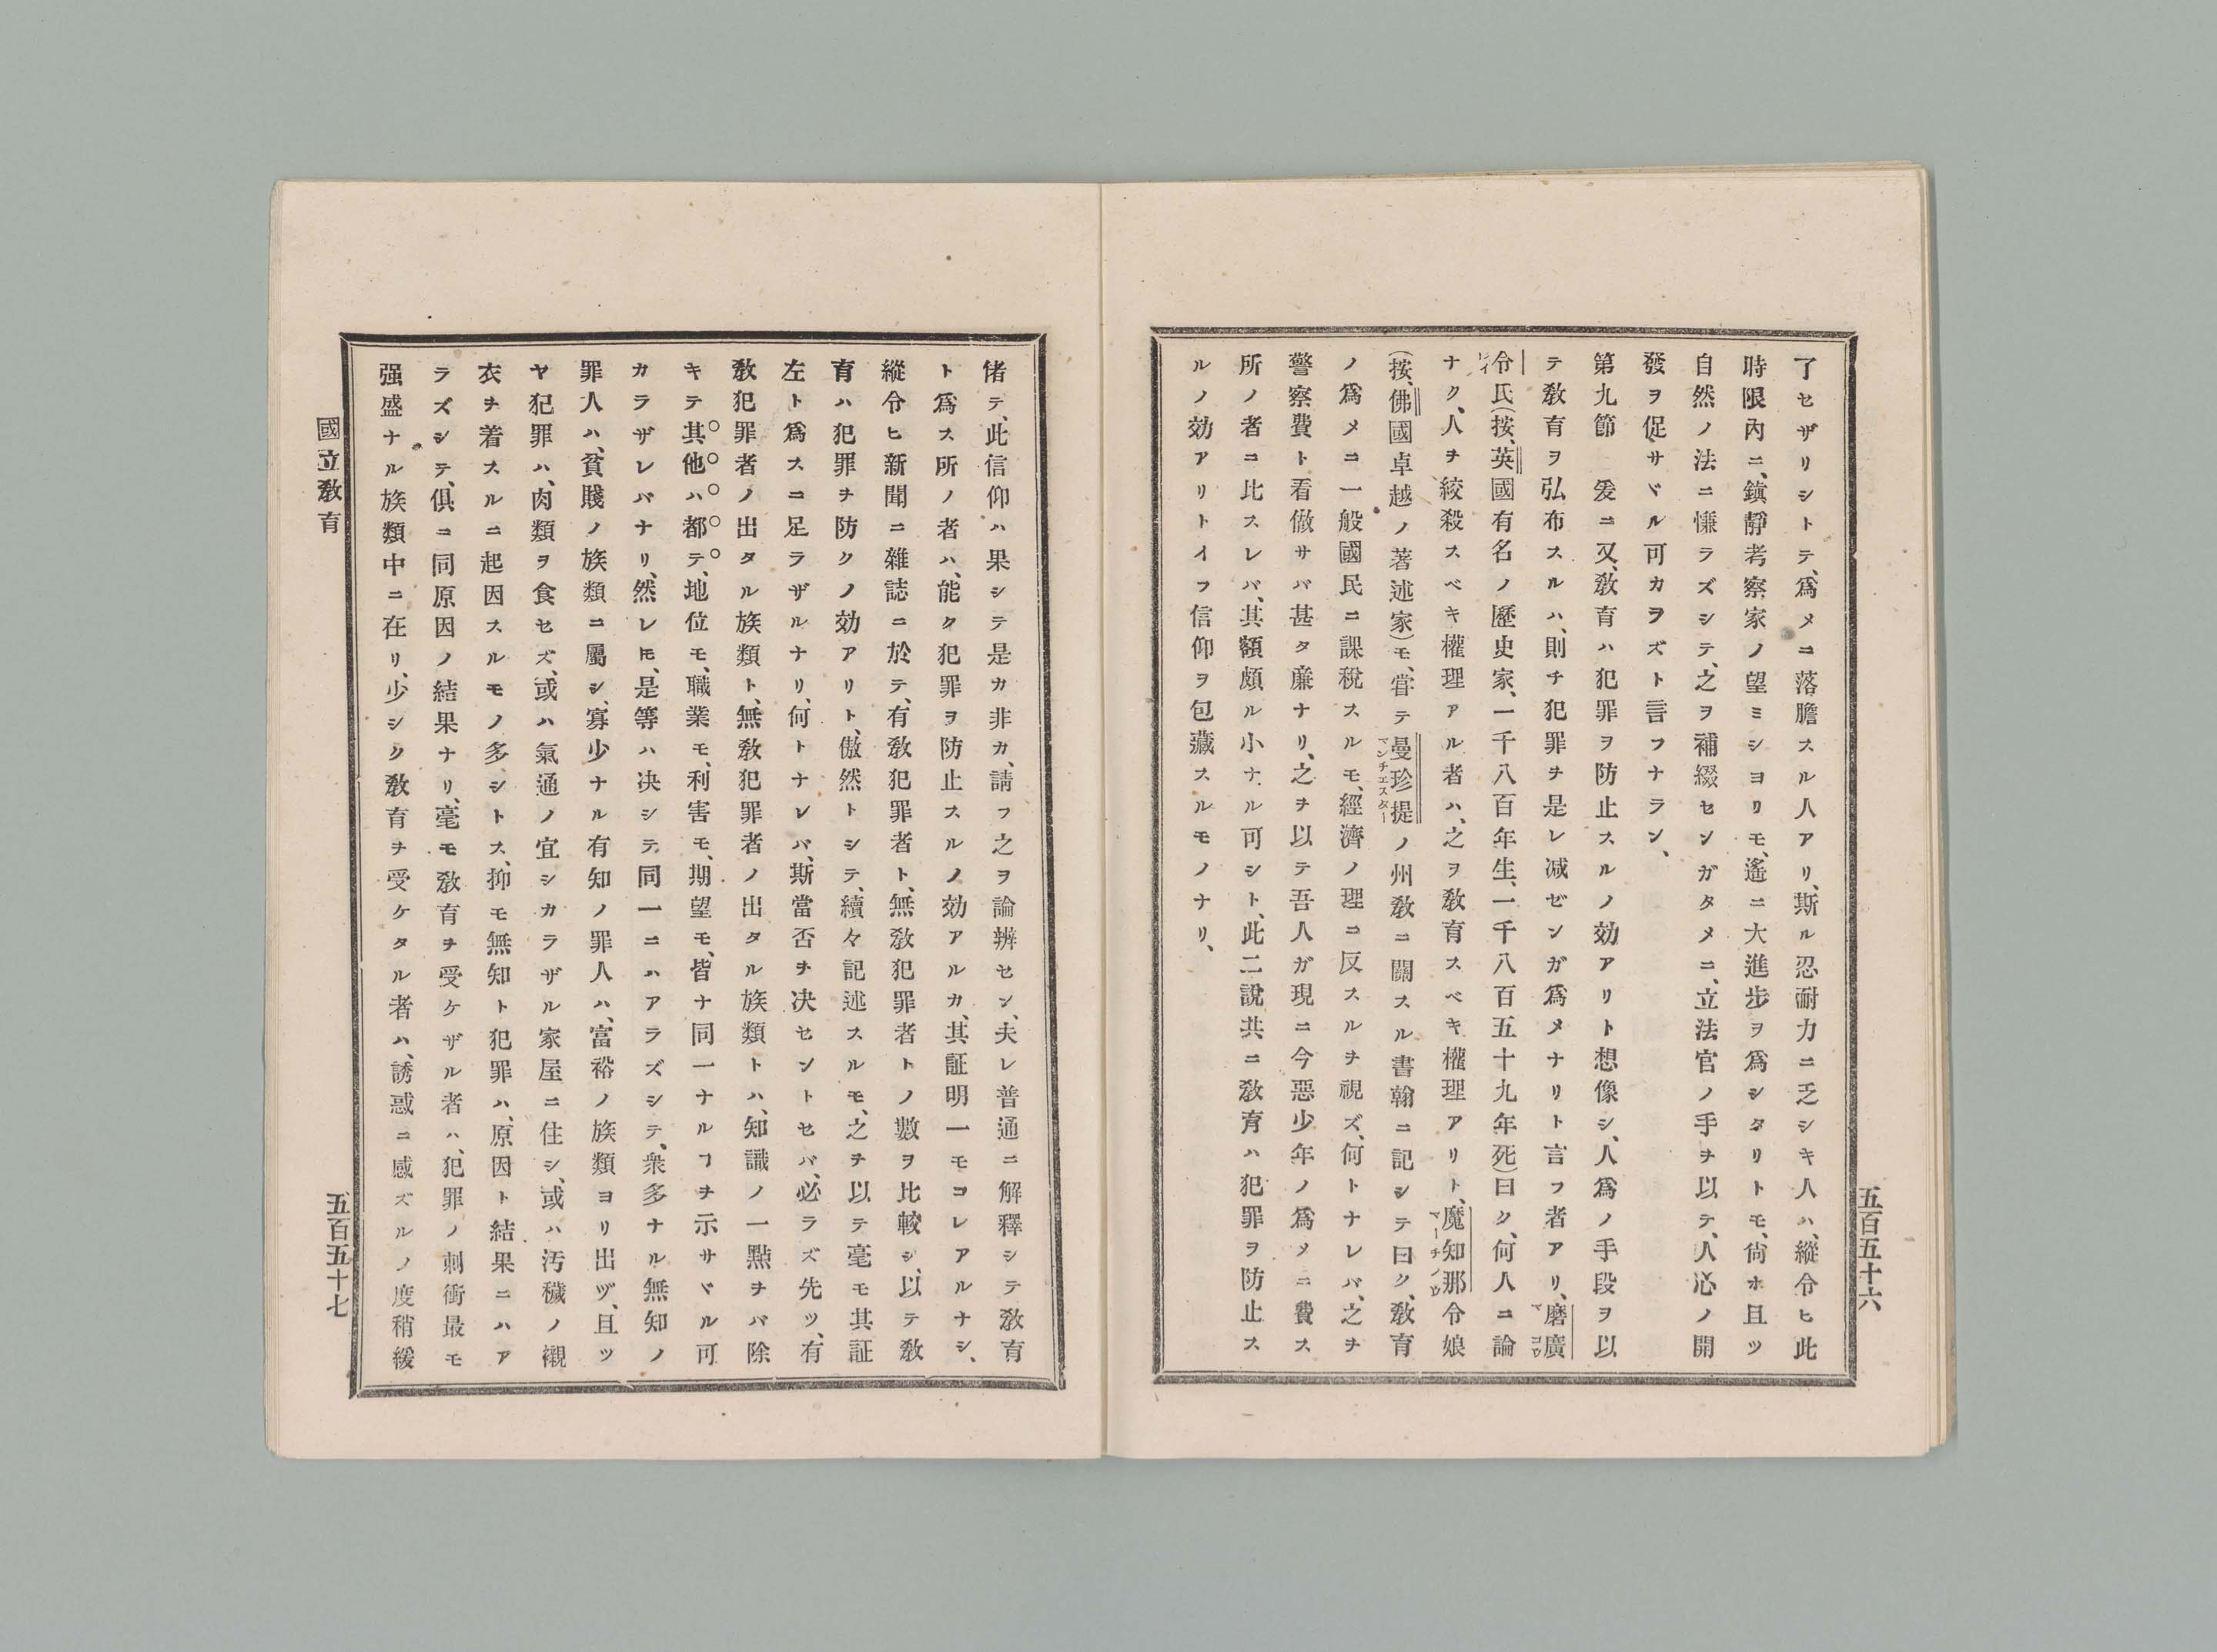 五百五十六
了セザリシトテ、爲メニ落膽スル人アリ、斯ル忍耐力ニ乏シキ人ハ、縱令ヒ此
時限內ニ、鎭靜考察家ノ望ミシヨリモ、遙ニ大進步ヲ爲シタリトモ、尙ホ且ツ
自然ノ法ニ慊ラズシテ、之ヲ補綴センガタメニ、立法官ノ手ヲ以テ、人心ノ開
發ヲ促サヾル可カラズト言フナラン、
第九節 爰ニ又、敎育ハ犯罪ヲ防止スルノ効アリト想像シ、人爲ノ手段ヲ以
テ敎育ヲ弘布スルハ、則チ犯罪ヲ是レ减ゼンガ爲メナリト言フ者アリ、磨廣
令氏(按、英國有名ノ歷史家、一千八百年生、一千八百五十九年死)曰ク、何人ニ論
ナク、人ヲ絞殺スベキ權理アル者ハ、之ヲ敎育スベキ權理アリト、魔知那令娘
(按、佛國卓越ノ著述家)モ、甞テ曼珍提ノ州敎ニ關スル書翰ニ記シテ曰ク、敎育
ノ爲メニ一般國民ニ課稅スルモ、經濟ノ理ニ反スルヲ視ズ、何トナレバ、之ヲ
警察費ト看傚サバ甚タ廉ナリ、之ヲ以テ吾人ガ現ニ今惡少年ノ爲メニ費ス
所ノ者ニ比スレバ、其額頗ル小ナル可シト、此二說共ニ敎育ハ犯罪ヲ防止ス
ルノ効アリトイフ信仰ヲ包藏スルモノナリ、
偖テ、此信仰ハ果シテ是カ非カ、請フ之ヲ論辨セン、夫レ普通ニ解釋シテ敎育
ト爲ス所ノ者ハ、能ク犯罪ヲ防止スルノ効アルカ、其証明一モコレアルナシ、
縱令ヒ新聞ニ雜誌ニ於テ、有敎犯罪者ト、無敎犯罪者トノ數ヲ比較シ、以テ敎
育ハ犯罪ヲ防クノ効アリト、傲然トシテ、續々記述スルモ、之ヲ以テ毫モ其証
左ト爲スニ足ラザルナリ、何トナレバ、斯當否ヲ决セントセバ、必ラズ先ツ、有
敎犯罪者ノ出タル族類ト、無敎犯罪者ノ出タル族類トハ、知識ノ一點ヲバ除
キテ其他ハ都テ、地位モ、職業モ、利害モ、期望モ、皆ナ同一ナルヿヲ示サヾル可
カラザレバナリ、然レ𪜈、是等ハ决シテ同一ニハアラズシテ、衆多ナル無知ノ
罪人ハ、貧賤ノ族類ニ屬シ、寡少ナル有知ノ罪人ハ、富裕ノ族類ヨリ出ヅ、且ツ
ヤ犯罪ハ、肉類ヲ食セズ、或ハ氣通ノ宜シカラザル家屋ニ住シ、或ハ汚穢ノ襯
衣ヲ着スルニ起因スルモノ多シトス、抑モ無知ト犯罪ハ、原因ト結果ニハア
ラズシテ、俱ニ同原因ノ結果ナリ、毫モ敎育ヲ受ケザル者ハ、犯罪ノ刺衝最モ
强盛ナル族類中ニ在リ、少シク敎育ヲ受ケタル者ハ、誘惑ニ感ズルノ度稍緩
國立敎育
五百五十七